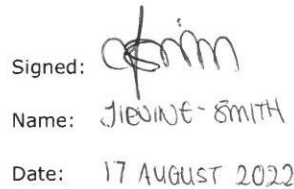 Signed:
Name: JIEVINE-SMITH
Date: 17 AUGUST 2022